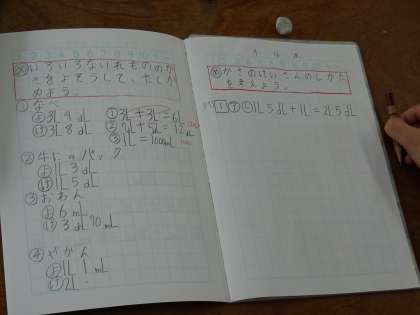 め いろいろないれもののか
さをよそうして、たしか
めよう。
① なべ
よ 3L 4dL
け 3L 8dL
① 3L + 3L = 6L
② 7dL + 5dL = 12dL
③ 1L = 1000mL
② 牛にゅうパック
よ 1L 3dL
け 1L 5dL
③ おわん
よ 6mL
け 3dL 70mL
④ やかん
よ 1L 1mL
け 2L
め かさのけいさんのしかた
を考えよう。
1 ア 1L 5dL + 1L = 2L 5dL